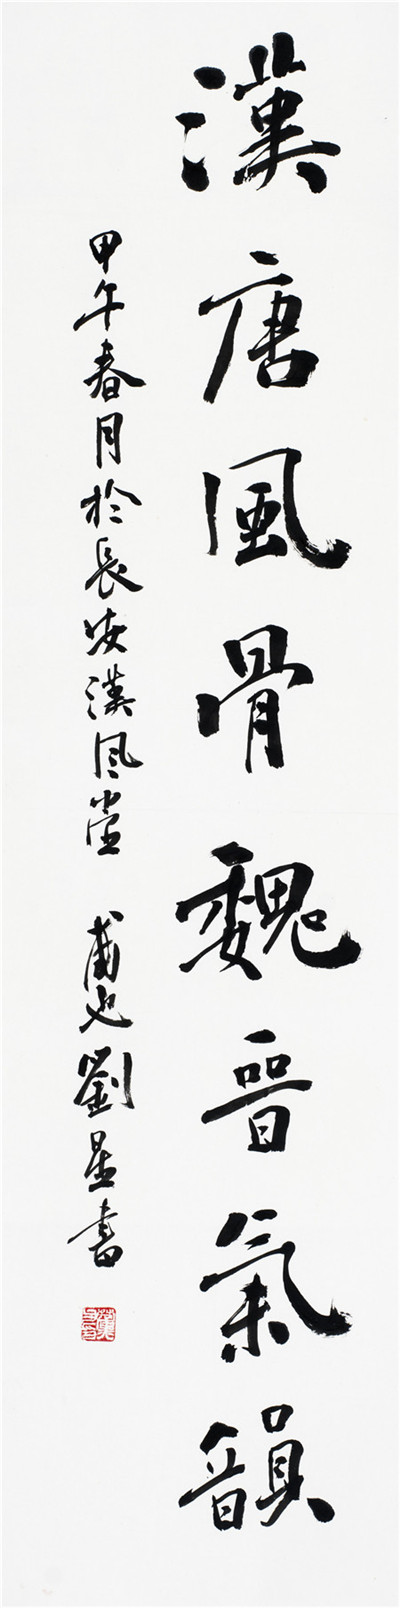 漢唐風骨魏晉氣韻
甲午春月於長安漢風堂 甫也劉星書